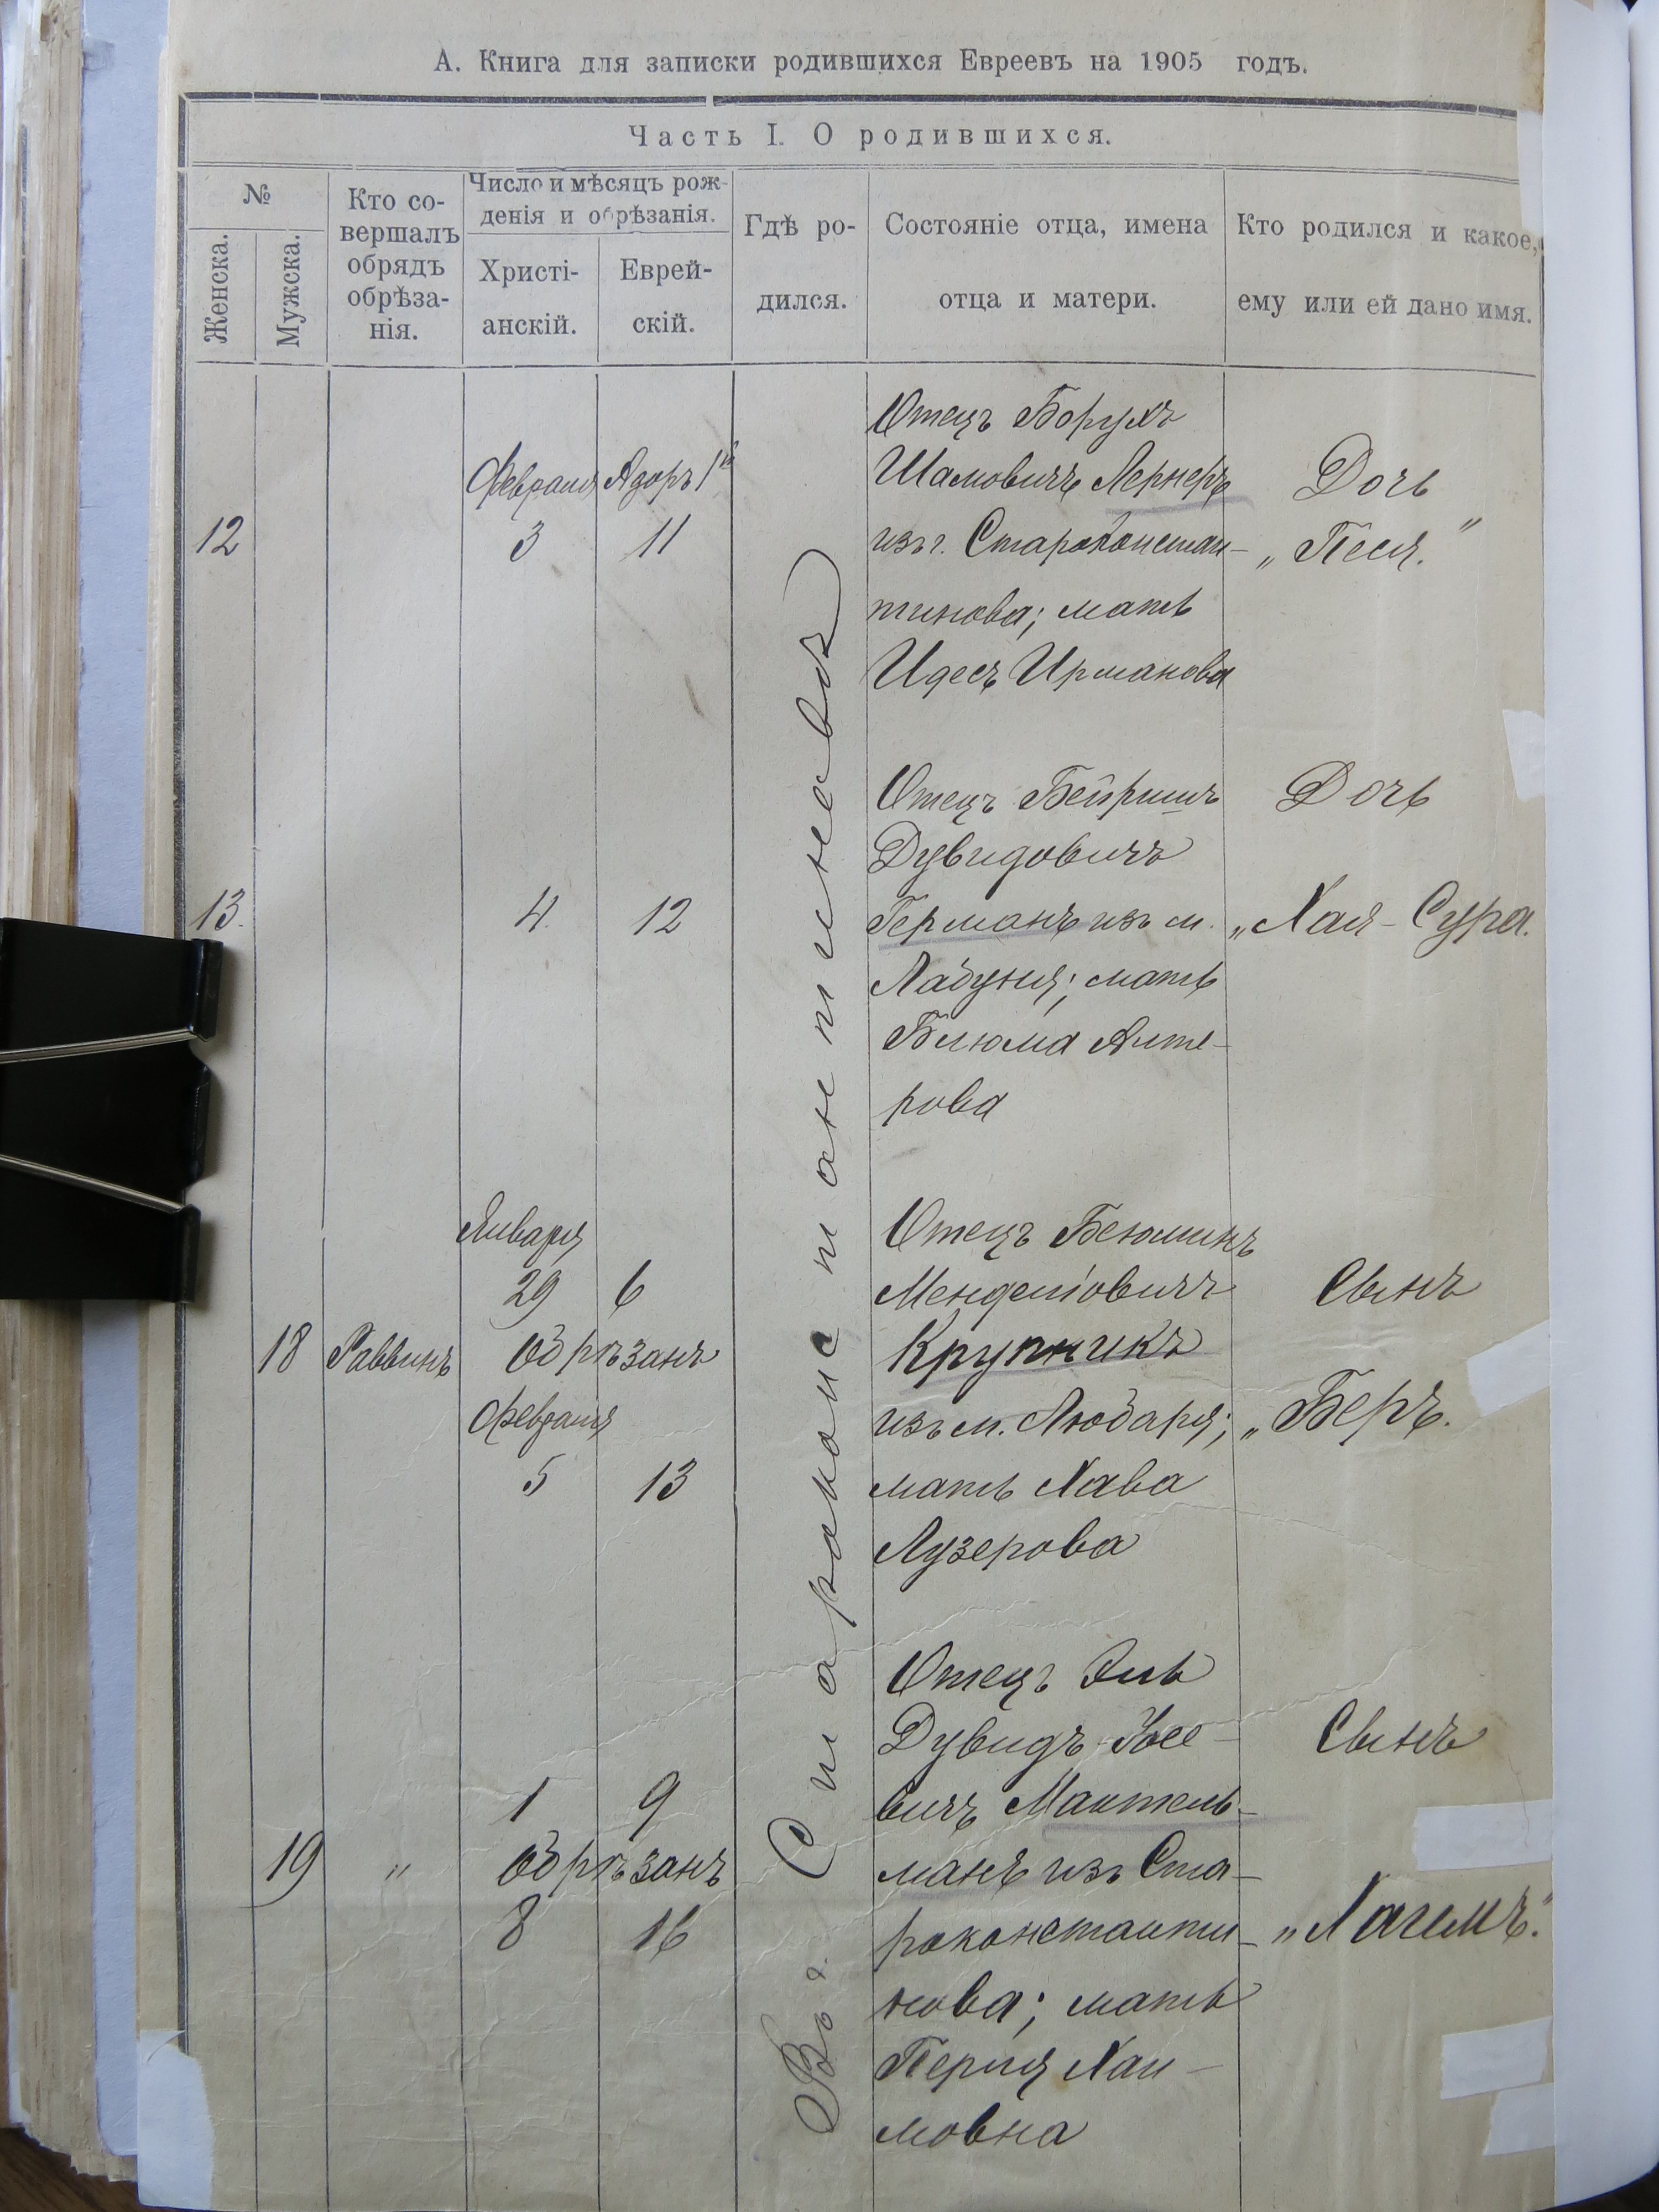 А. Книга для записки родившихся Евреевъ на 1905 годъ.
Часть I. О родившихся.
№
Женска.
Мужска.
Кто со-
вершалъ
обрядъ
обрѣза-
нія.
Число и мѣсяцъ рож-
денія и обрѣзанія.
Христі-
анскій.
Еврей-
скій.
Гдѣ ро-
дился.
Состояніе отца, имена
отца и матери.
Кто родился и какое,
ему или ей дано имя.
Въ г. Староконстантиневъ
12
Февраля Адоръ 1й
3 11
Отецъ Борухъ
Шамовичъ Лернеръ
изъ г. Староконстан-
тинова; мать
Идесъ Ирманова
Дочь
„Песя."
13.
4. 12
Отецъ Бейришъ
Дувидовичъ
Германъ изъ м.
Лабуня; мать
Блюма Алте-
рова
Дочь
„Хая-Сура.
18 Раввинъ
Января
29 6
Обрѣзанъ
Февраля
5 13
Отецъ Беюминъ
Менделіовичъ
Крупникъ
изъ м. Любаря;
мать Хава
Лузерова
Сынъ
„Беръ.
19 "
1 9
Обрѣзанъ
8 16
Отецъ Эль
Дувидъ
вичъ Мантель-
манъ изъ Ста-
роконстанти-
нова; мать
Перля Хаи-
мовна
Сынъ